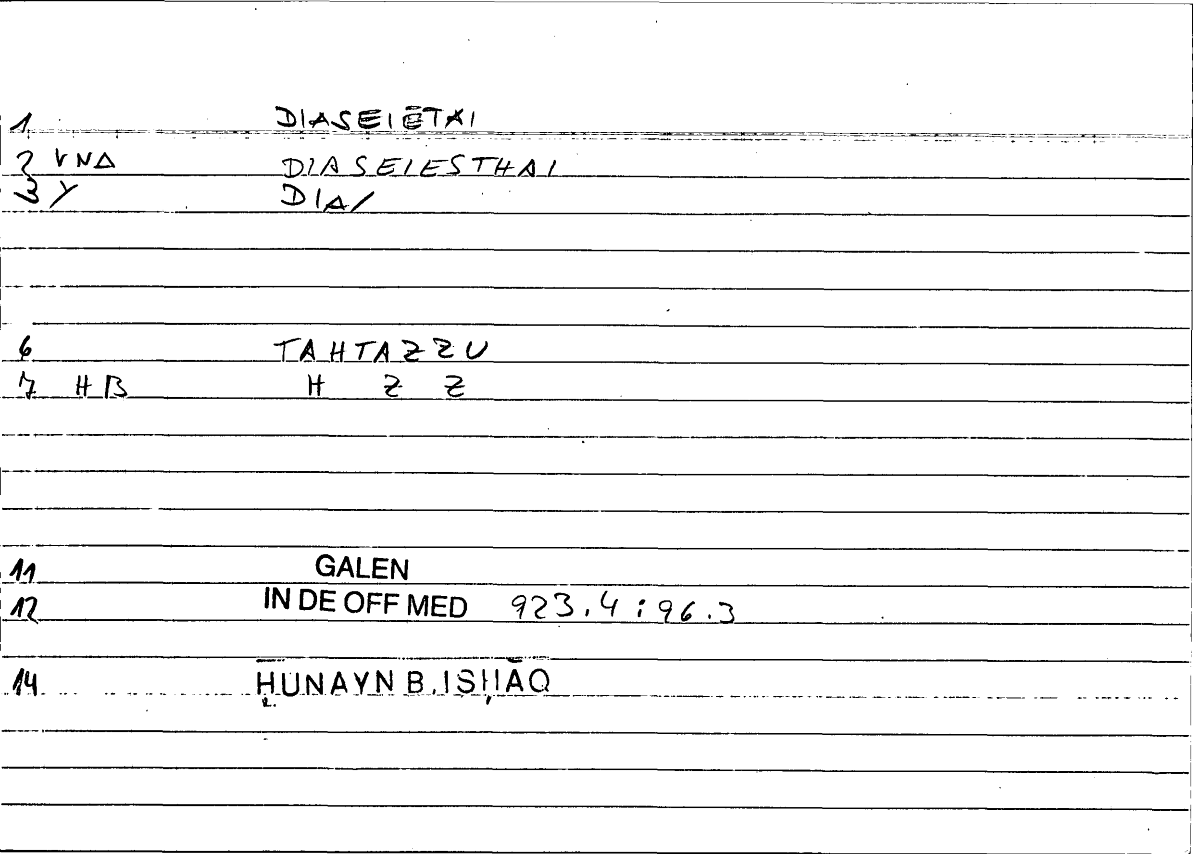 1 DIASEIĒTAI
2 VNA DIASEIESTHAI
3 Y DIA/
6 TAHTAZZU
7 HB H Z Z
11 GALEN
12 IN DE OFF MED 923.4 : 96.3
14 ḤUNAYN B. ISḤĀQ